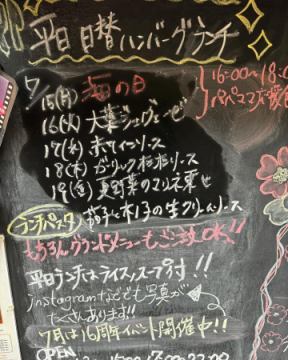 平日 日替ハンバーグランチ
7/
15(月) 海の日
16(火) 大葉ジェノベーゼ
17(水) 赤ワインソース
18(木) ガーリック
19(金) 夏野菜のマリネ乗せ
16:00〜18:0
パパママ
ランチパスタ 茄子と の生クリームソース
もちろんグランドメニューもご注文OK!!
平日ランチはライス,スープ付!!
instagramなどでも写真が
たくさんあります!!
7月は16周年イベント開催中!!
OPEN